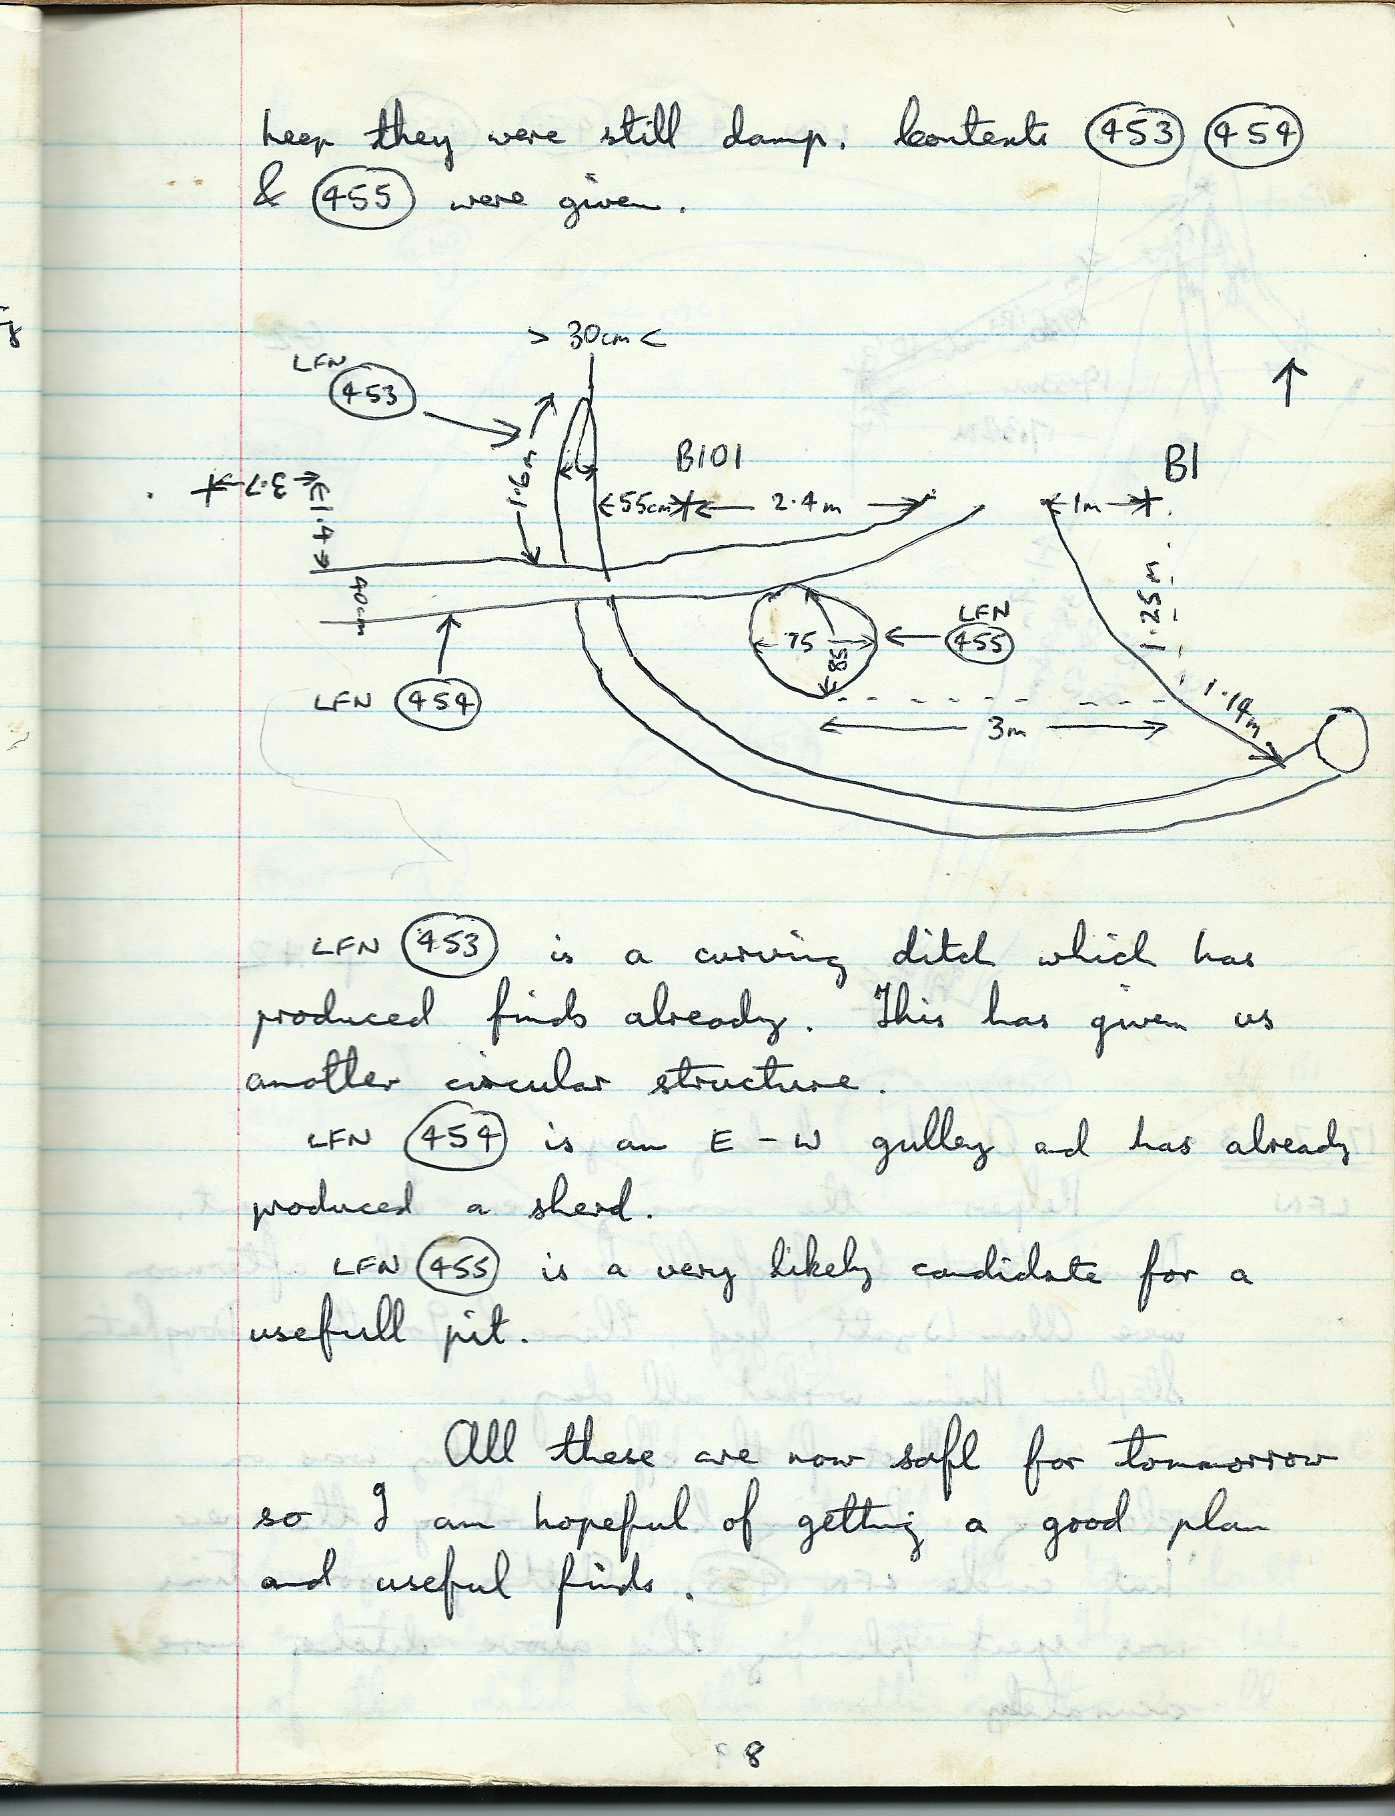 keep they were still damp. Contexts 453 454
& 455 were given.
> 30cm <
LFN
453
1.6m
B101
B1
3.7
1.4
55cm
2.4m
1m
40cm
1.25m
LFN
455
75
85
LFN 454
1.14m
3m
LFN 453 is a curving ditch which has
produced finds already. This has given us
another circular structure.
LFN 454 is an E - W gulley and has already
produced a sherd.
LFN 455 is a very likely candidate for a
usefull pit.
All these are now safe for tommorrow
so I am hopeful of getting a good plan
and useful finds.
8